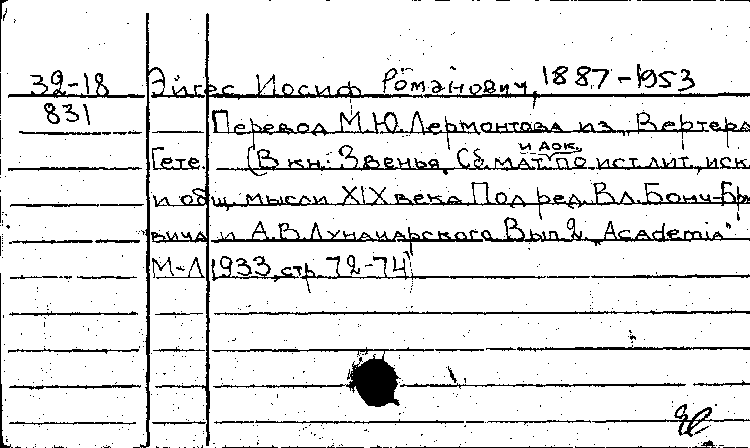 32-18 Эйгес, Иосиф Романович, 1887-1953
831 Перевод М.Ю. Лермонтова из "Вертера"
Гете. (В кн: Звенья, Сб. мат. и док. по ист. лит., иск.
и общ. мысли XIX века. Под ред. Вл. Бонч-Бру
вича и А.В. Луначарского. Вып. 2, "Academia"
М-Л 1933, стр. 72-74)